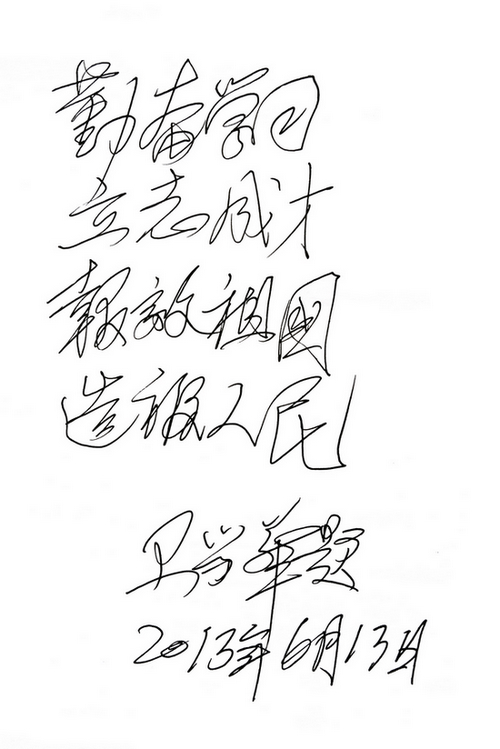 勤奋学习
立志成才
報效祖國
造福人民
学华题
2013年6月13日